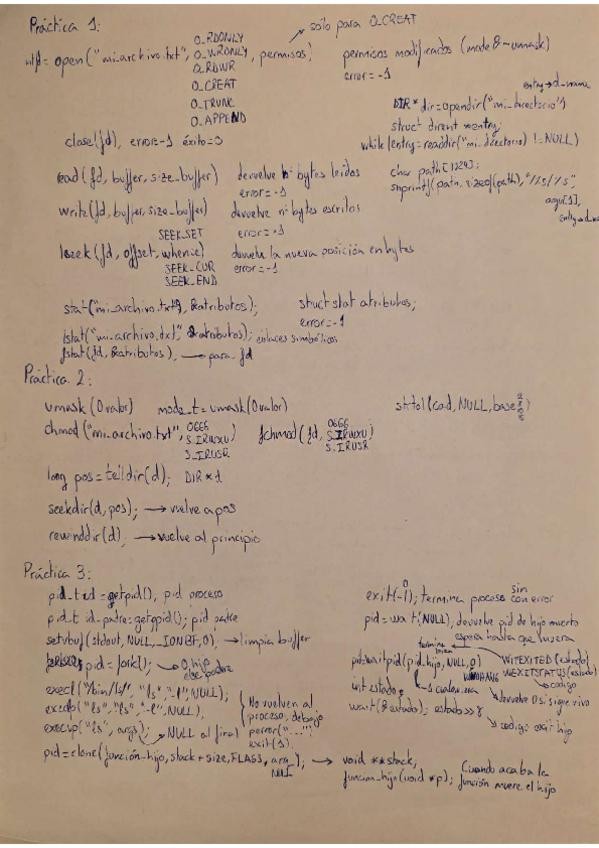 Práctica 1:
sólo para O_CREAT
O_RDONLY
= open("mi_archivo.txt", O_WRONLY, permisos)
permisos modificados (mode & ~umask)
O_RDWR
error = -1
O_CREAT
O_TRUNC
O_APPEND
entry->d_name
DIR * dir = opendir("mi_directorio")
struct dirent *entry;
close(fd), error=-1 éxito=0
while (entry = readdir("mi_directorio") != NULL)
read (fd, buffer, size_buffer) devuelve nº bytes leídos
error = -1
char path[1024];
snprintf(path, sizeof(path), "%s/%s",
write (fd, buffer, size_buffer) devuelve nº bytes escritos
error = -1
SEEK_SET
lseek (fd, offset, whence) devuelve la nueva posición en bytes
SEEK_CUR error = -1
SEEK_END
stat("mi_archivo.txt", &atributos); struct stat atributos;
error = -1
lstat("mi_archivo.txt", &atributos); enlaces simbólicos
fstat(fd, &atributos), → para fd
Práctica 2:
umask (0valor) mode_t = umask(0valor)
strtol(cad, NULL, base
chmod("mi_archivo.txt", 0666 fchmod(fd, 0666
S_IRWXU) S_IRWXU)
S_IRUSR S_IRUSR
long pos = telldir(d); DIR *d
seekdir(d, pos); → vuelve a pos
rewinddir(d); → vuelve al principio
Práctica 3:
pid_t id = getpid(), pid proceso
exit(-1); termina proceso sin con error
0
pid_t id_padre = getppid(); pid padre
pid = wait(NULL), devuelve pid de hijo muerto
espera hasta que muera
setvbuf(stdout, NULL, _IONBF, 0), → limpia buffer
pid = fork(); → 0 hijo
else padre
pid = waitpid(pid_hijo, NULL, 0) WIFEXITED(estado)
WNOHANG WEXITSTATUS(estado)
-1 cualquiera
código
execl("/bin/ls", "ls", "-l", NULL);
int estado;
devuelve 0 si sigue vivo
execlp("ls", "ls", "-l", NULL),
No vuelven al
proceso, debajo
wait(&estado); estado >> 8
código exit hijo
execvp("ls", args); → NULL al final
perror("...")
exit(1).
pid = clone(función_hijo, stack + size, FLAGS, arg); → void **stack;
NULL
función_hijo(void *p); Cuando acaba la
función muere el hijo